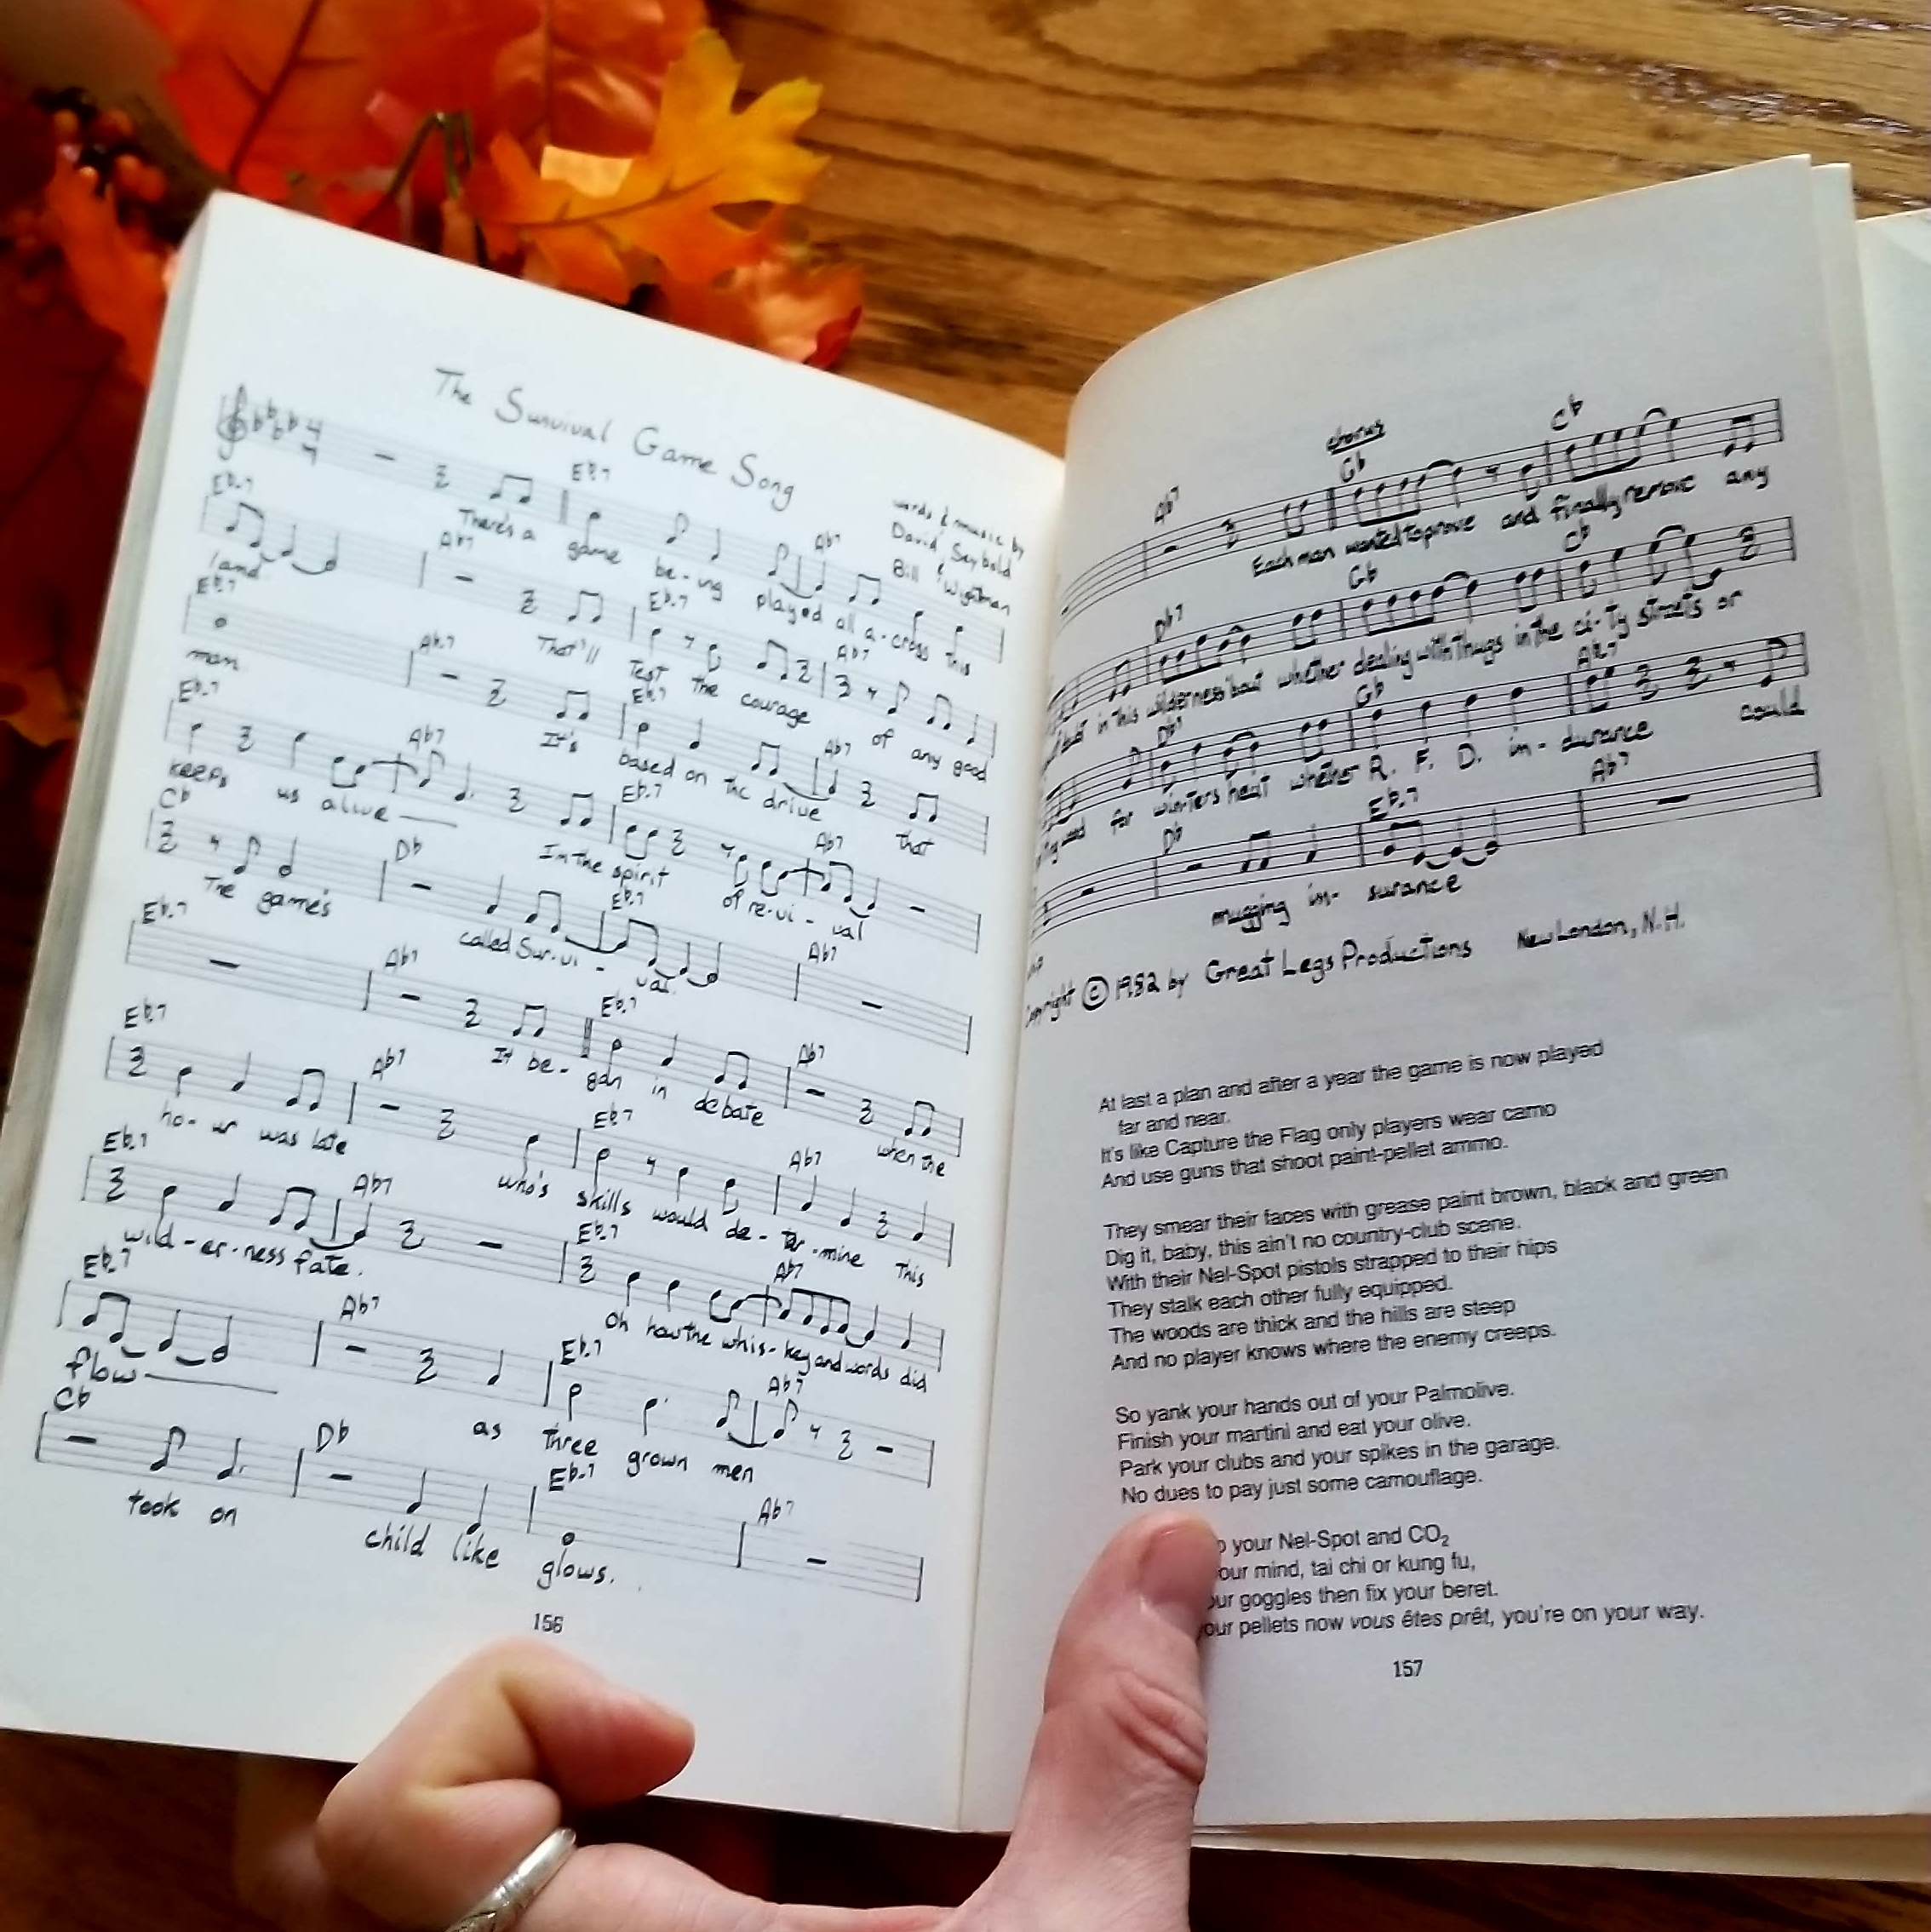 The Survival Game Song
words & music by
David Seybold
&
Bill Wightman
4
4
Eb-7 Ab7
There's a game be-ing played all a-cross this
Eb-7 Ab7 Eb-7 Ab7
land That'll Test the courage of any good
Eb-7 Ab-7 Eb-7 Ab7
man It's based on the drive that
Eb-7 Ab7 Eb-7 Ab7
keeps us alive In the spirit of re-vi-val
Cb Db Eb-7 Ab7
The game's called Sur-vi-val.
Eb-7 Ab7 Eb-7 Ab7
It be-gan in debate when the
Eb-7 Ab7 Eb-7 Ab7
ho-ur was late who's skills would de-ter-mine This
Eb-7 Ab7 Eb-7 Ab7
wild-er-ness fate. Oh how the whis-key and words did
Eb-7 Ab7 Eb-7 Ab7
flow as three grown men
Cb Db Eb-7 Ab7
took on child like glows.
156
chorus
Ab7 Gb Cb
Each man wanted to prove and finally remove any
Db7 Gb Cb
in this wilderness bout whether dealing with thugs in the ci-ty streets or
Db7 Gb Ab-7
for winters heat whether R. F. D. in-durance could
Db Eb-7 Ab7
mugging in-surance
Copyright © 1982 by Great Legs Productions New London, N.H.
At last a plan and after a year the game is now played
far and near.
It's like Capture the Flag only players wear camo
And use guns that shoot paint-pellet ammo.
They smear their faces with grease paint brown, black and green
Dig it, baby, this ain't no country-club scene.
With their Nel-Spot pistols strapped to their hips
They stalk each other fully equipped.
The woods are thick and the hills are steep
And no player knows where the enemy creeps.
So yank your hands out of your Palmolive.
Finish your martini and eat your olive.
Park your clubs and your spikes in the garage.
No dues to pay just some camouflage.
your Nel-Spot and CO₂
mind, tai chi or kung fu,
goggles then fix your beret.
pellets now vous êtes prêt, you're on your way.
157